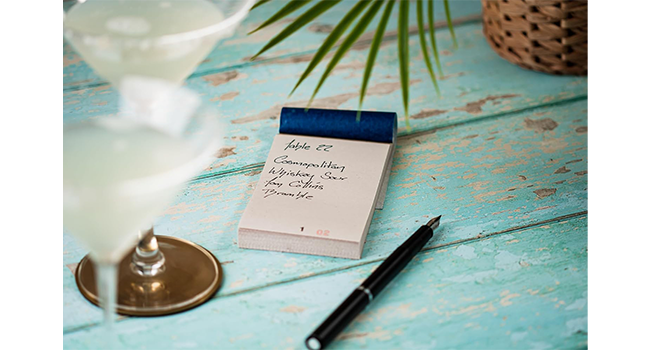 Table 22
Cosmopolitan
Whiskey Sour
Tom Collins
Bramble
1 02